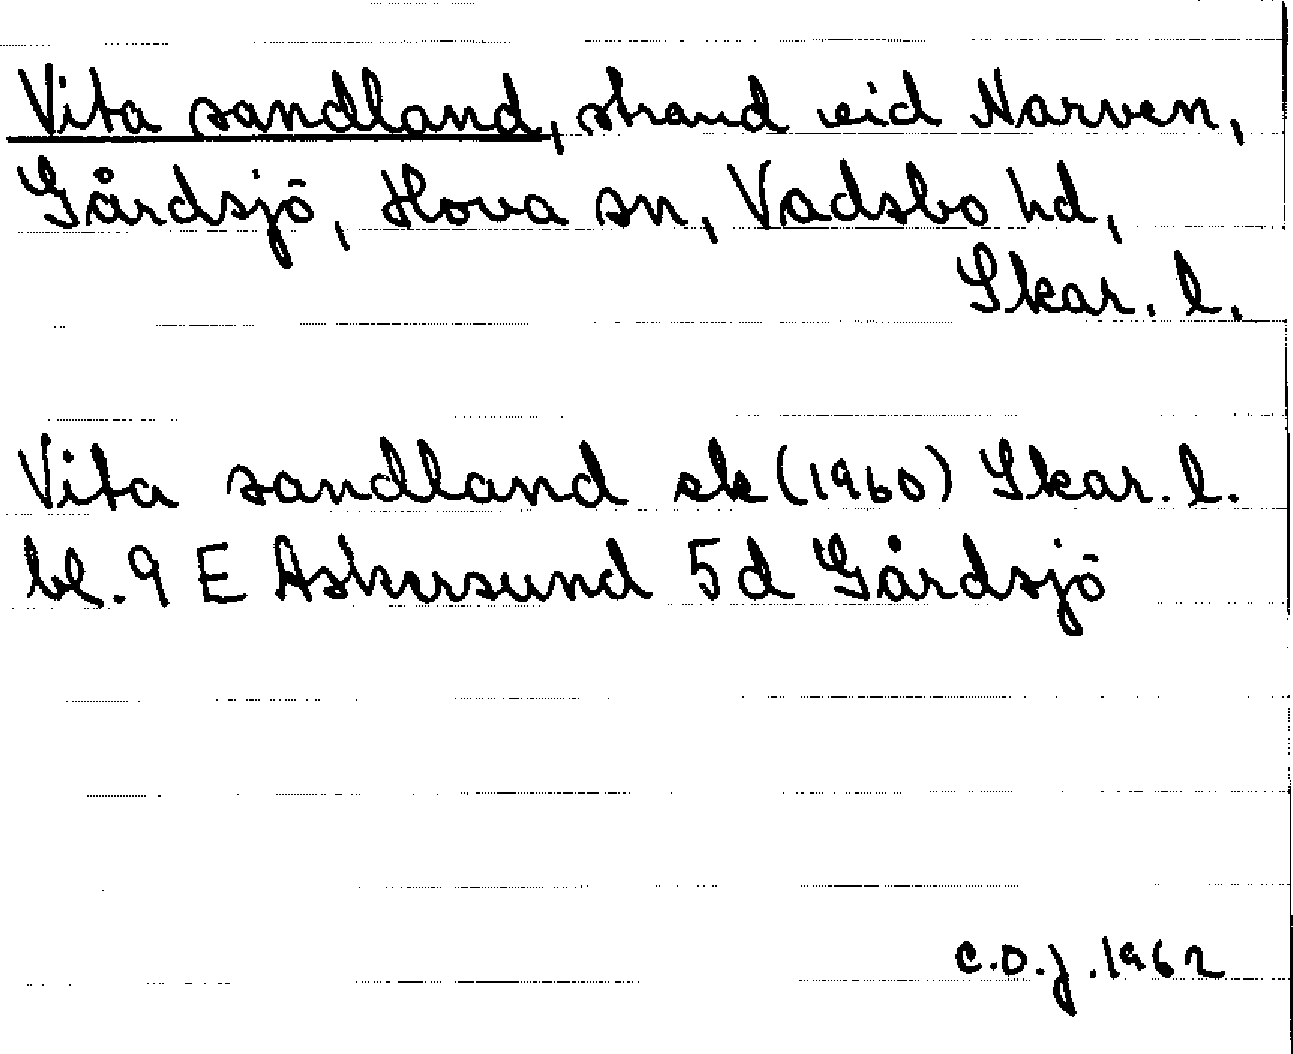 Vita sandland, strand vid Narven,
Gårdsjö, Hova sn, Vadsbo hd,
Skar. l.
Vita sandland ek (1960) Skar. l.
bl. 9 E Askersund 5 d Gårdsjö
C.O.J. 1962